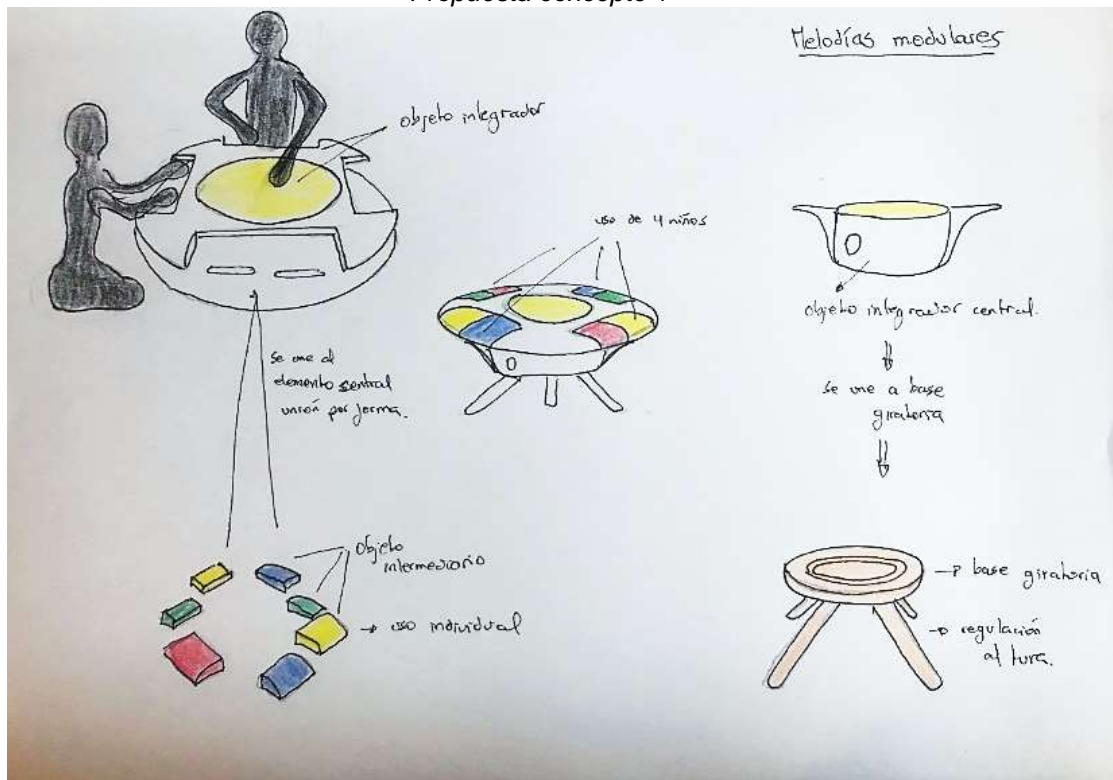 Melodías modulares
objeto integrador
uso de 4 niños
objeto integrador central.
se une a base
giratoria
se une al
elemento sentral
unión por forma.
Objeto
intermediario
uso individual
base giratoria
regulación
altura.